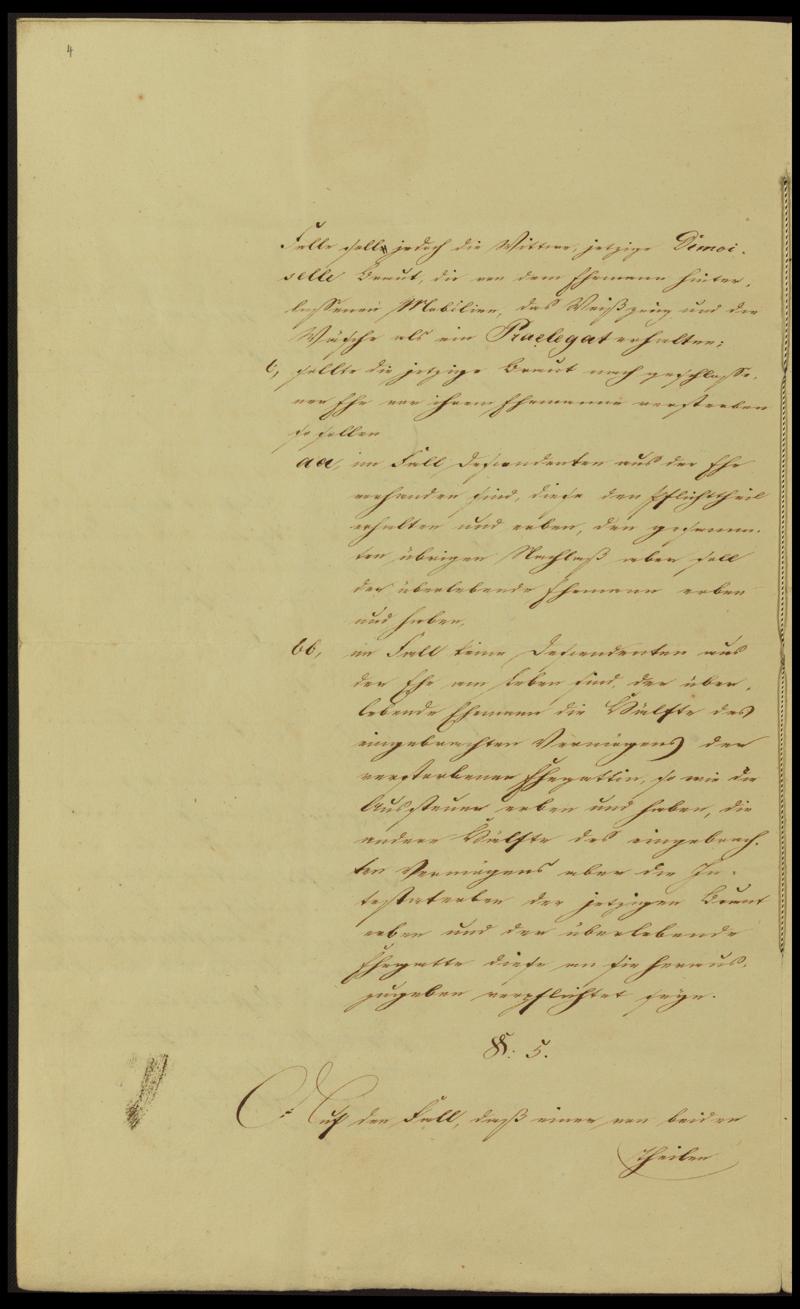 4
Falle soll jedoch die Wittwe, jetzige Demoi-
selle Braut, die von dem Ehemann hinter-
lassenen Mobilien, das Weißzeug und die
Wäsche als ein Praelegat erhalten;
b, sollte die jetzige Braut nach geschlosse-
ner Ehe vor ihrem Ehemanne versterben
so sollen
aa, im Fall Descendenten aus der Ehe
vorhanden sind, diese den Pflichttheil
erhalten und erben, den gesamm-
ten übrigen Nachlaß aber soll
der überlebende Ehemann erben
und haben,
bb, im Fall keine Descendenten aus
der Ehe am Leben sind, der über-
lebende Ehemann die Hälfte des
eingebrachten Vermögens der
verstorbenen Ehegattin, so wie die
Aussteuer erben und haben, die
andere Hälfte des eingebrach-
ten Vermögens aber die In-
testaterben der jetzigen Braut
erben und der überlebende
Ehegatte diese an sie heraus-
zugeben verpflichtet seyn.
§: 5.
Auf den Fall, daß einer von beiden
Theilen